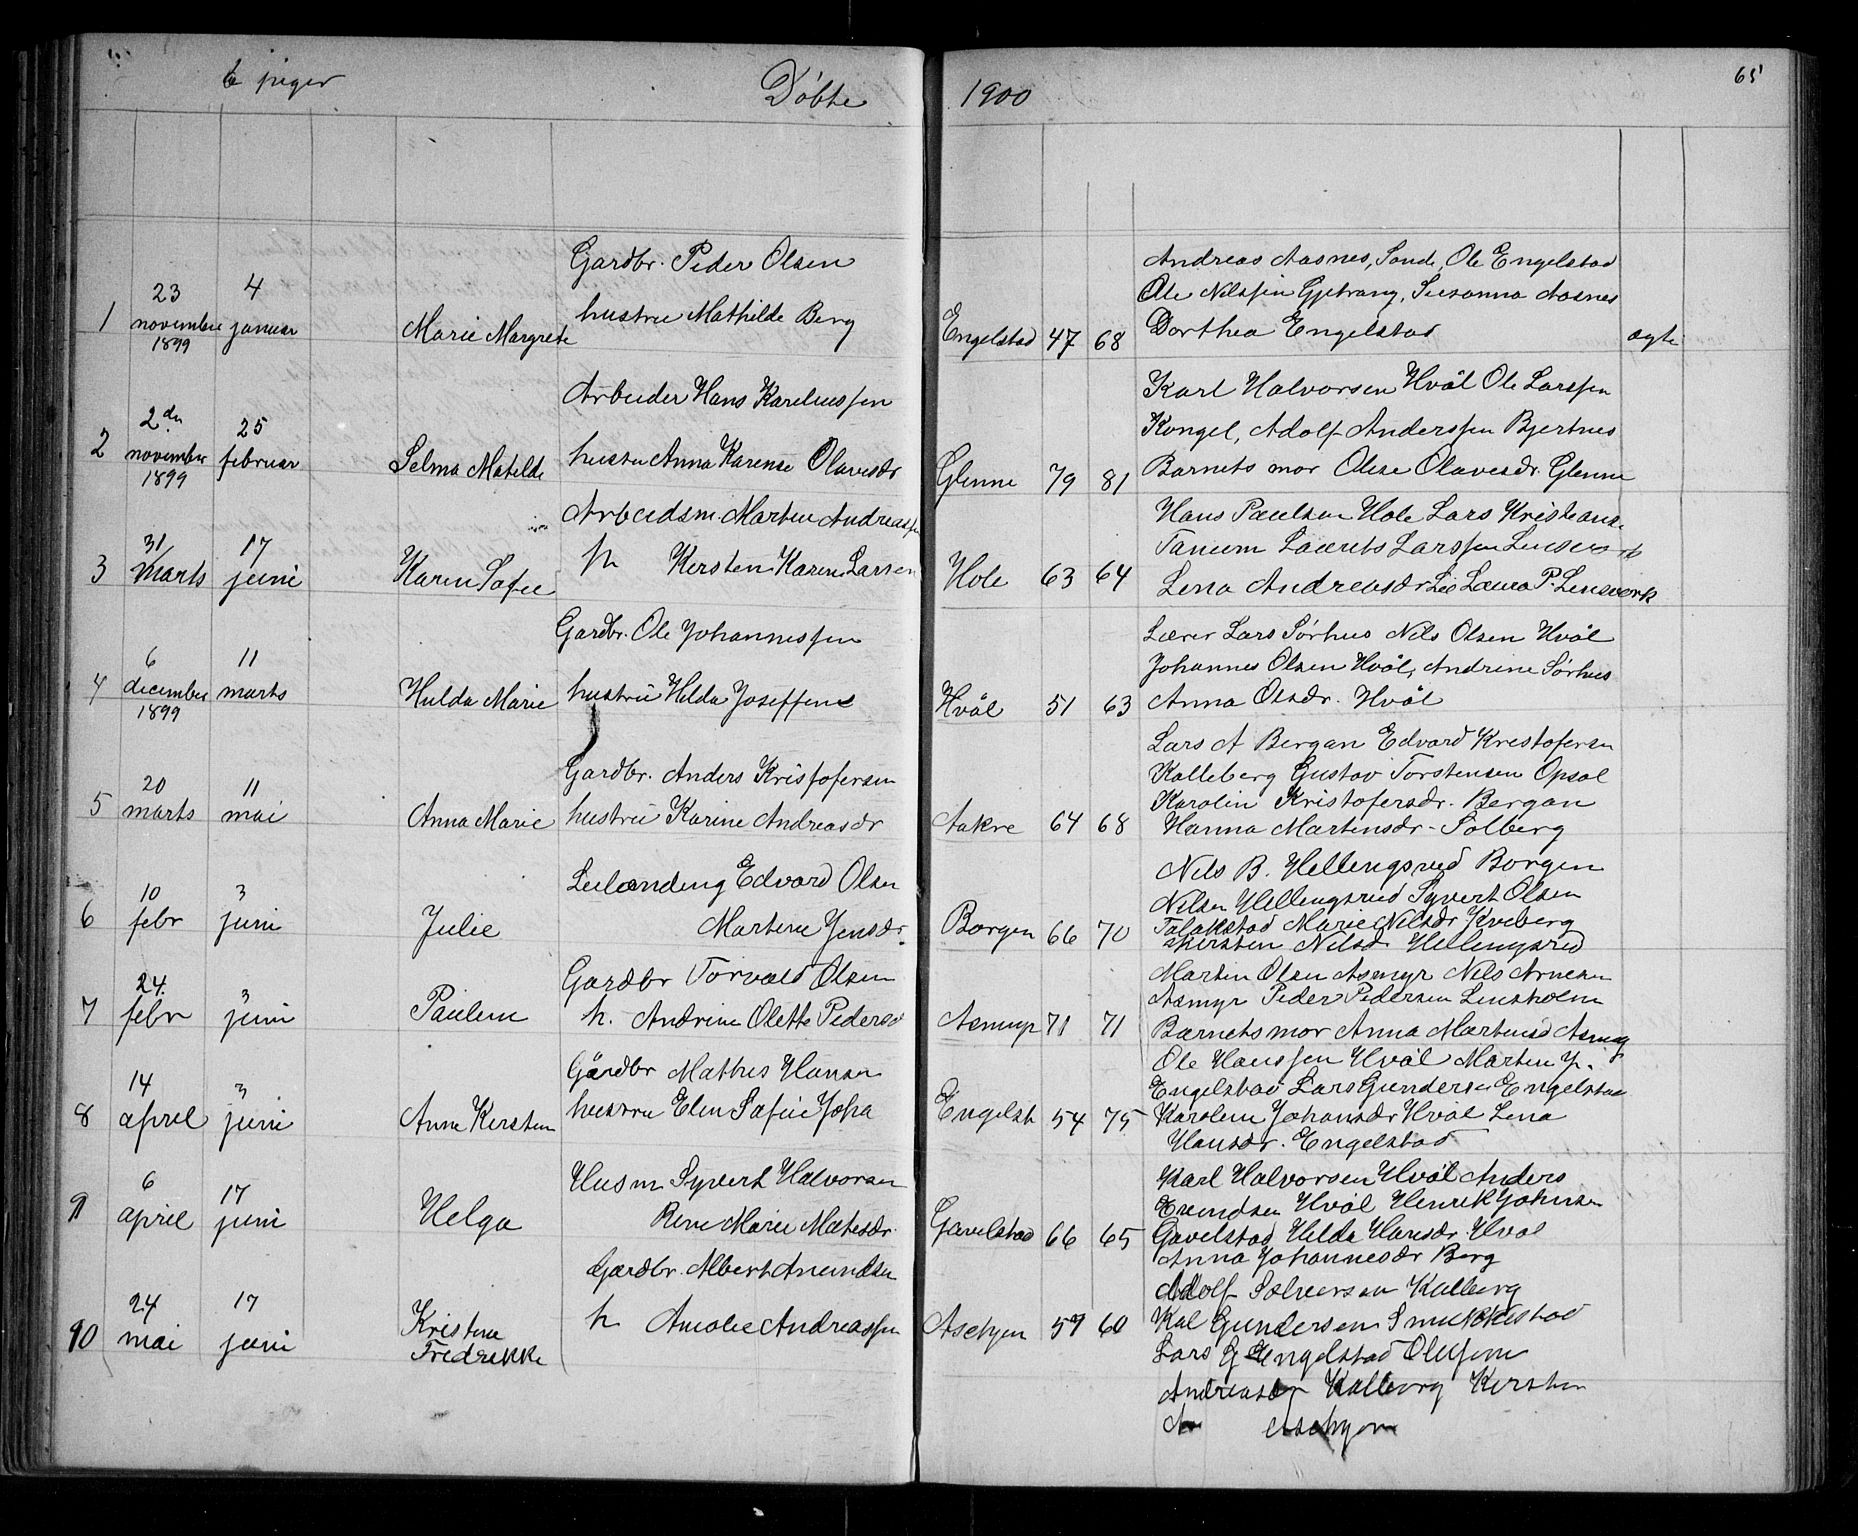 6 piger Døbte 1900 65
1 23 november 1899 4 januar Marie Margrete
Gardbr. Peder Olsen
hustru Mathilde Berg
Engelstad 47 68
Andreas Aasnes, Sand, Ole Engelstad
Ole Nilssen Gjetrang, Susanna Aasnes
Dorthea Engelstad
ægte
2 2den november 1899 25 februar Selma Matilde
Arbeider Hans Kareliussen
hustru Anna Karense Olavesdr
Glenne 79 81
Karl Halvorsen Hvål Ole Larssen
Kongel, Adolf Anderssen Bjertnes
Barnets mor Olise Olavesdr. Glenne
3 31 marts 17 juni Karen Sofie
Arbeidsm. Martin Andreassen
h Kersten Karine Larsen
Hole 63 64
Hans Paulsen Hole Lars Kristians.
Tanum Laurits Larssen
Lena Andreasdr Lie Laura P. Linsverk
4 6 december 1899 11 marts Hulda Marie
Gardbr. Ole Johannessen
hustru Hilda Joseffine
Hvål 51 63
Lærer Lars Sørhus Nils Olsen Hvål
Johannes Olsen Hvål, Andrine Sørhus
Anna Olsdr. Hvål
5 20 marts 11 mai Anna Marie
Gardbr. Anders Kristofersen
hustru Karine Andreasdr
Aakre 64 68
Lars A Bergan Edvard Kristofersen
Kalleberg Gustav Torstensen Opsal
Karolin Kristofersdr. Bergan
Hanna Martinsdr. Solberg
6 10 febr 3 juni Julie
Leilænding Edvard Olsen
Martine Jensdr.
Borgen 66 70
Nils B. Hellingsrud Borgen
Nilsen Hellingsrud Syvert Olsen
Falakstad Marie Nilsdr Kveberg
Kirsten Nilsd Hellingsrud
7 24. febr 3 juni Pauline
Gardbr Torvald Olsen
h. Andrine Olette Pedersd
Asmyr 71 71
Martin Olsen Asmyr Nils Arnesen
Asmyr Peder Pedersen Linsholm
Barnets mor Anna Martinsd Asmyr
8 14 april 3 juni Anne Kirsten
Gårdbr Mathis Hansen
hustru Elen Sofie Joha
Engelst 54 75
Ole Hanssen Hvål Martin J.
Engelstad Lars Gundersen Engelstad
Karoline Johansdr Hvål Lena
Hansdr. Engelstad
9 6 april 17 juni Helga
Husm Syvert Halvorsen
Rine Marie Matisdr.
Gavelstad 66 65
Karl Halvorsen Hvål Anders
Evendsen Hvål Henrik Johnsen
Gavelstad Hilda Hansdr. Hval
Anna Johannesdr Berg
10 24 mai 17 juni Kristine Fredrikke
Gardbr. Albert Anundsen
h Amalie Andreassen
Aschjem 59 60
Adolf Kalberg
Kal Gundersen Smukkestad
Lars G Engelstad Olufine
Andreasdr Kalberg Kirsten
A Aschjem